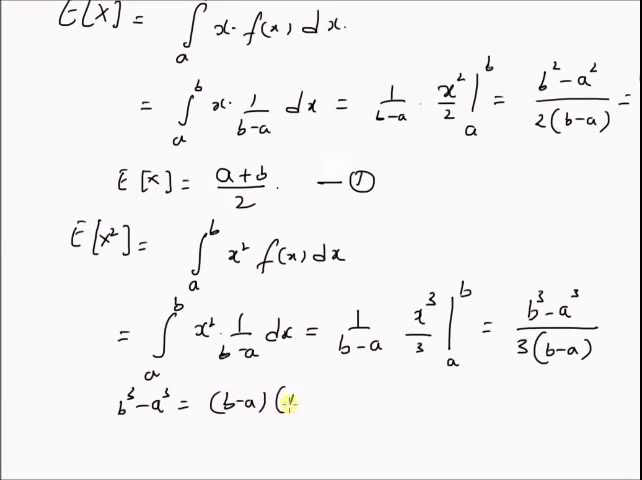 E[X] = ∫ₐ x·f(x) dx.
= ∫ₐᵇ x· 1/(b-a) dx = 1/(b-a) · x²/2 |ₐᵇ = (b²-a²)/(2(b-a)) =
E[X] = (a+b)/2. — ①
E[X²] = ∫ₐᵇ x² f(x) dx
= ∫ₐᵇ x²· 1/(b-a) dx = 1/(b-a) x³/3 |ₐᵇ = (b³-a³)/(3(b-a))
b³-a³ = (b-a) (